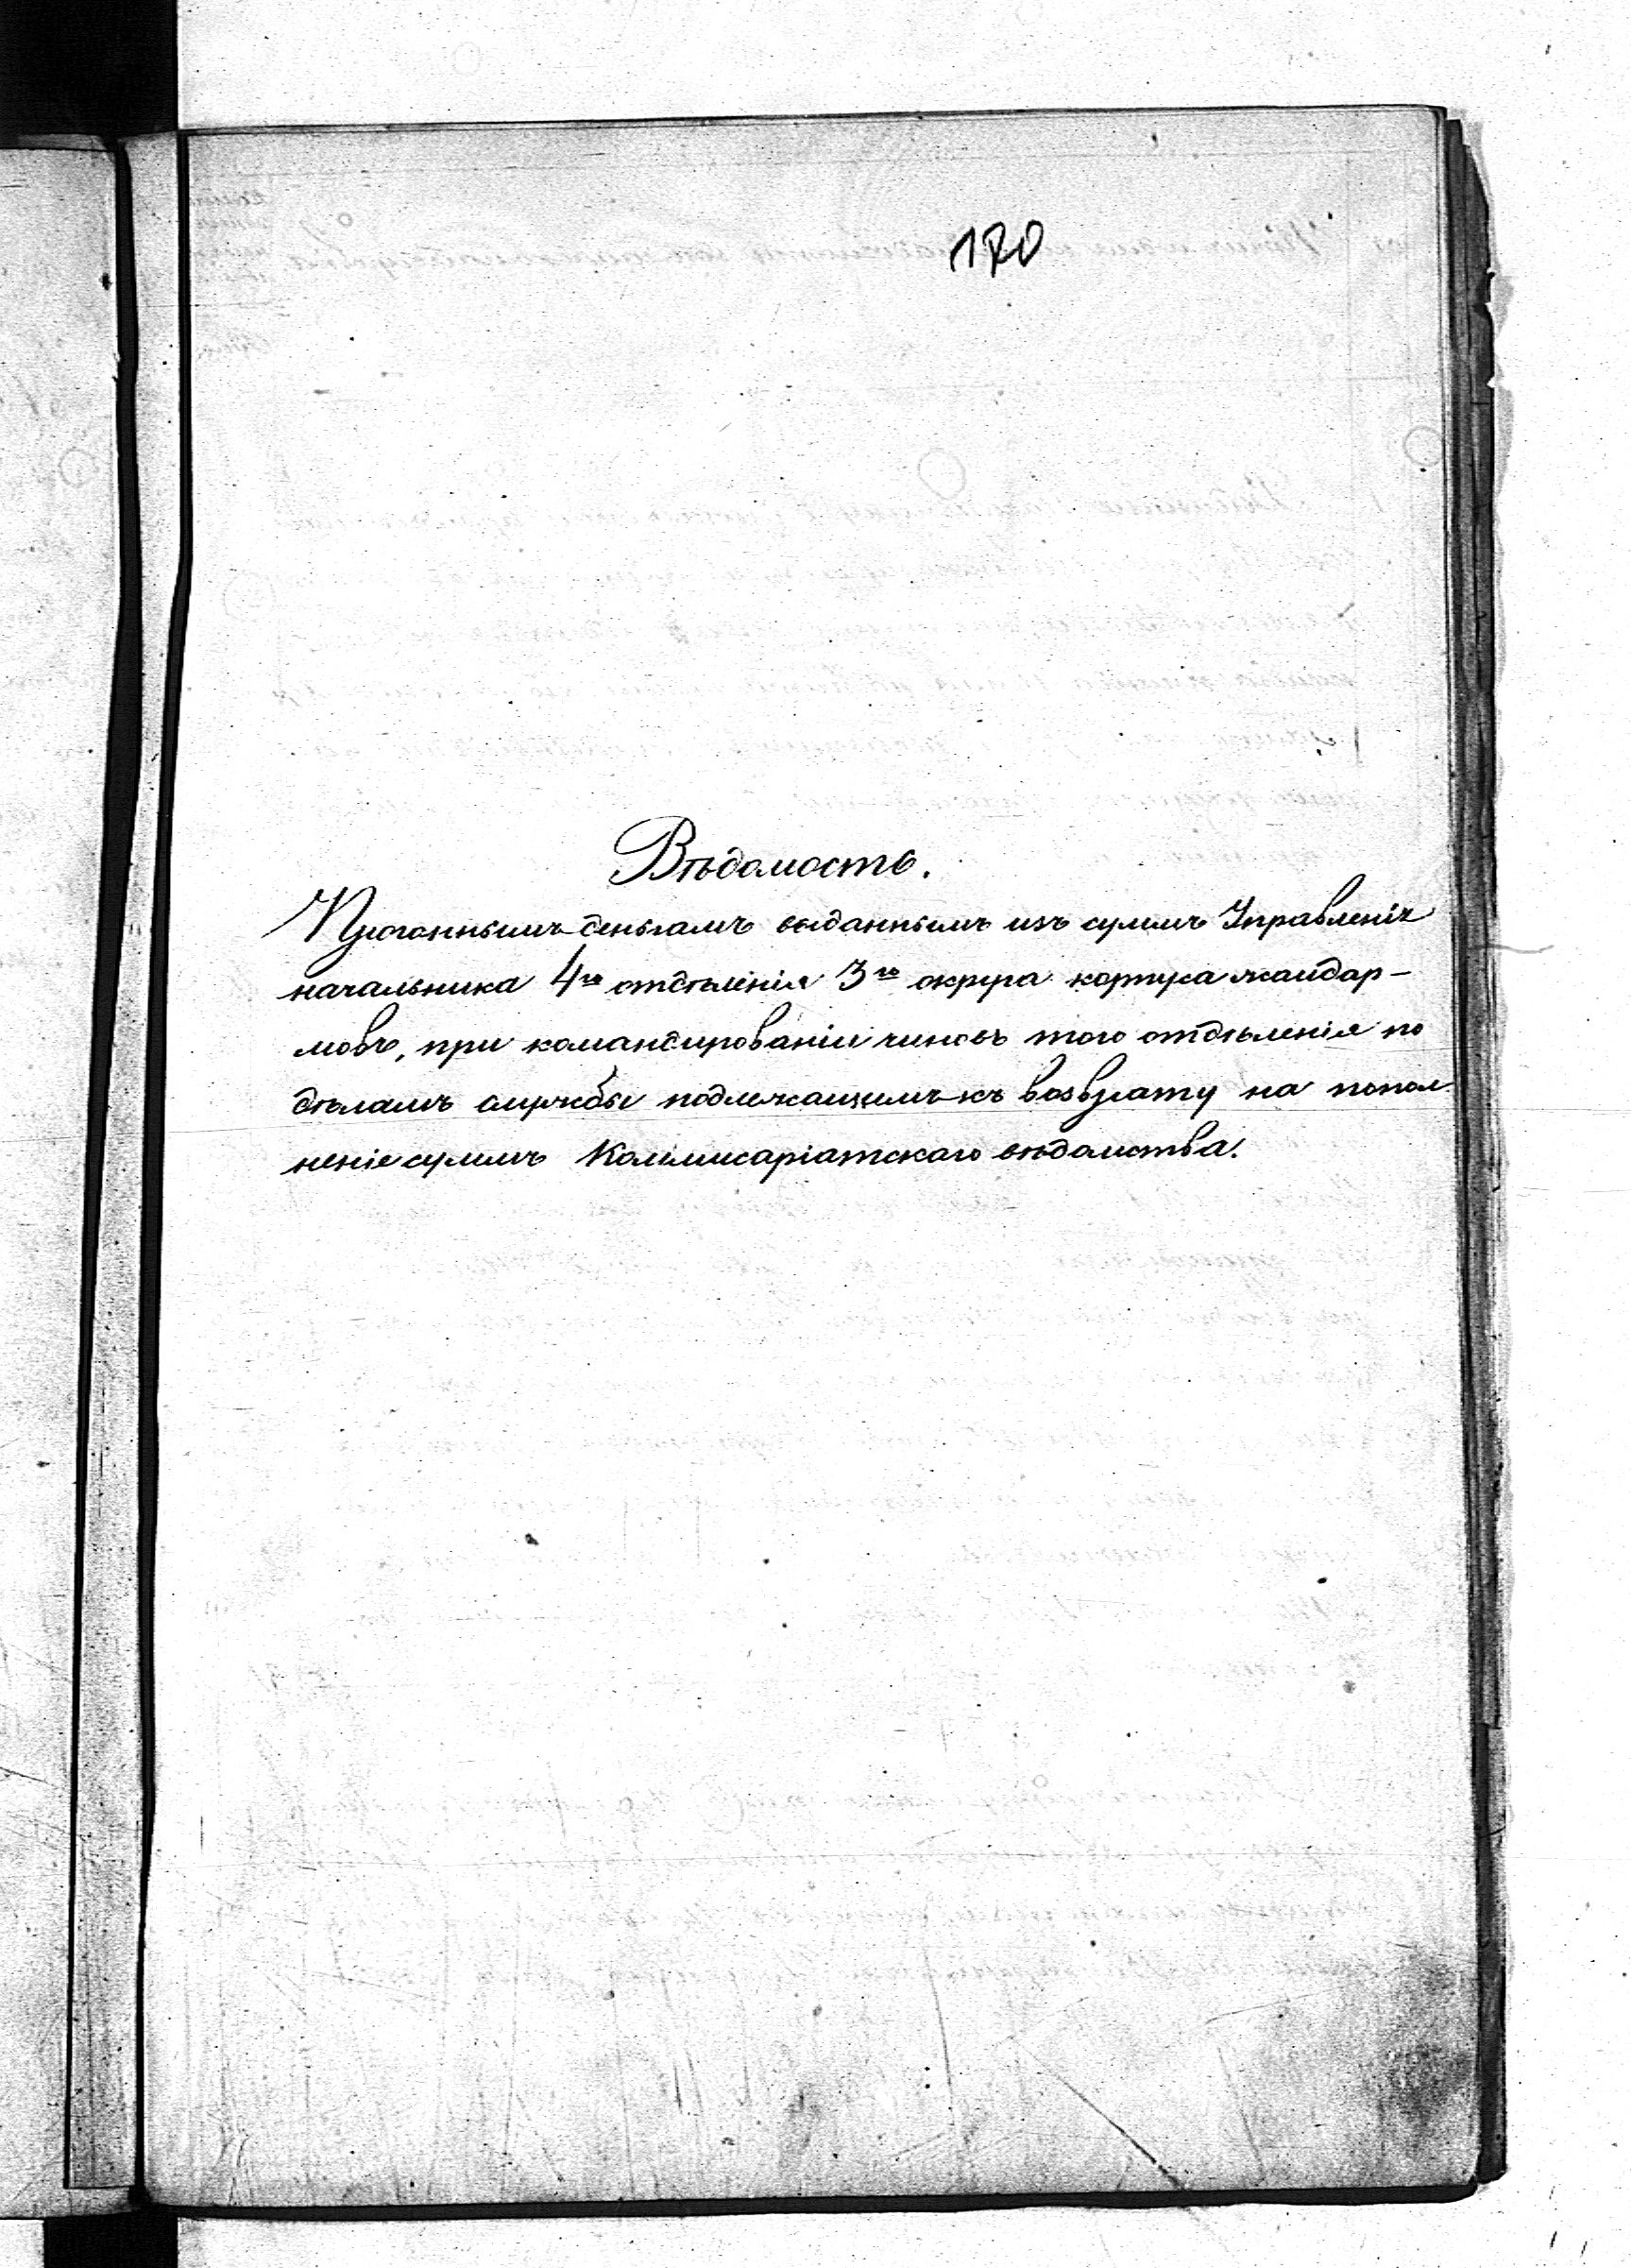 170
Вѣдомость.
Прогоннымъ деньгамъ выданнымъ изъ суммъ Управленія
начальника 4го отдѣленія 3го округа корпуса жандар-
мовъ, при командированіи чиновъ того отдѣленія по
дѣламъ службы подлежащимъ къ возврату на попол
неніе суммъ Коммисаріатскаго вѣдомства.